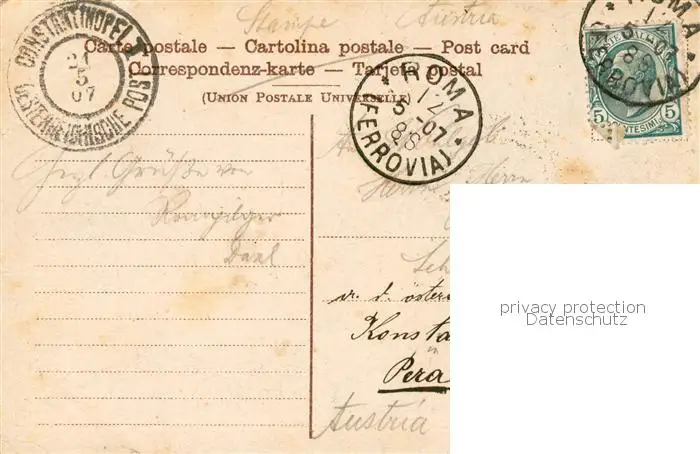 Stampe Austria
Carte postale — Cartolina postale — Post card
Correspondenz-karte — Tarjeta postal
(Union Postale Universelle)
CONSTANTINOPEL I
21
5
07
OESTERREICHISCHE POST
* ROMA *
12
5 -07
88
(FERROVIA)
* ROMA *
12
5 -07
88
(FERROVIA)
POSTE ITALIANE
5 CENTESIMI 5
Herzl. Grüße von
Rompilger
Dahl
Herrn
Sch
v. d. österr
Konsta
in
Pera
Austria
privacy protection
Datenschutz